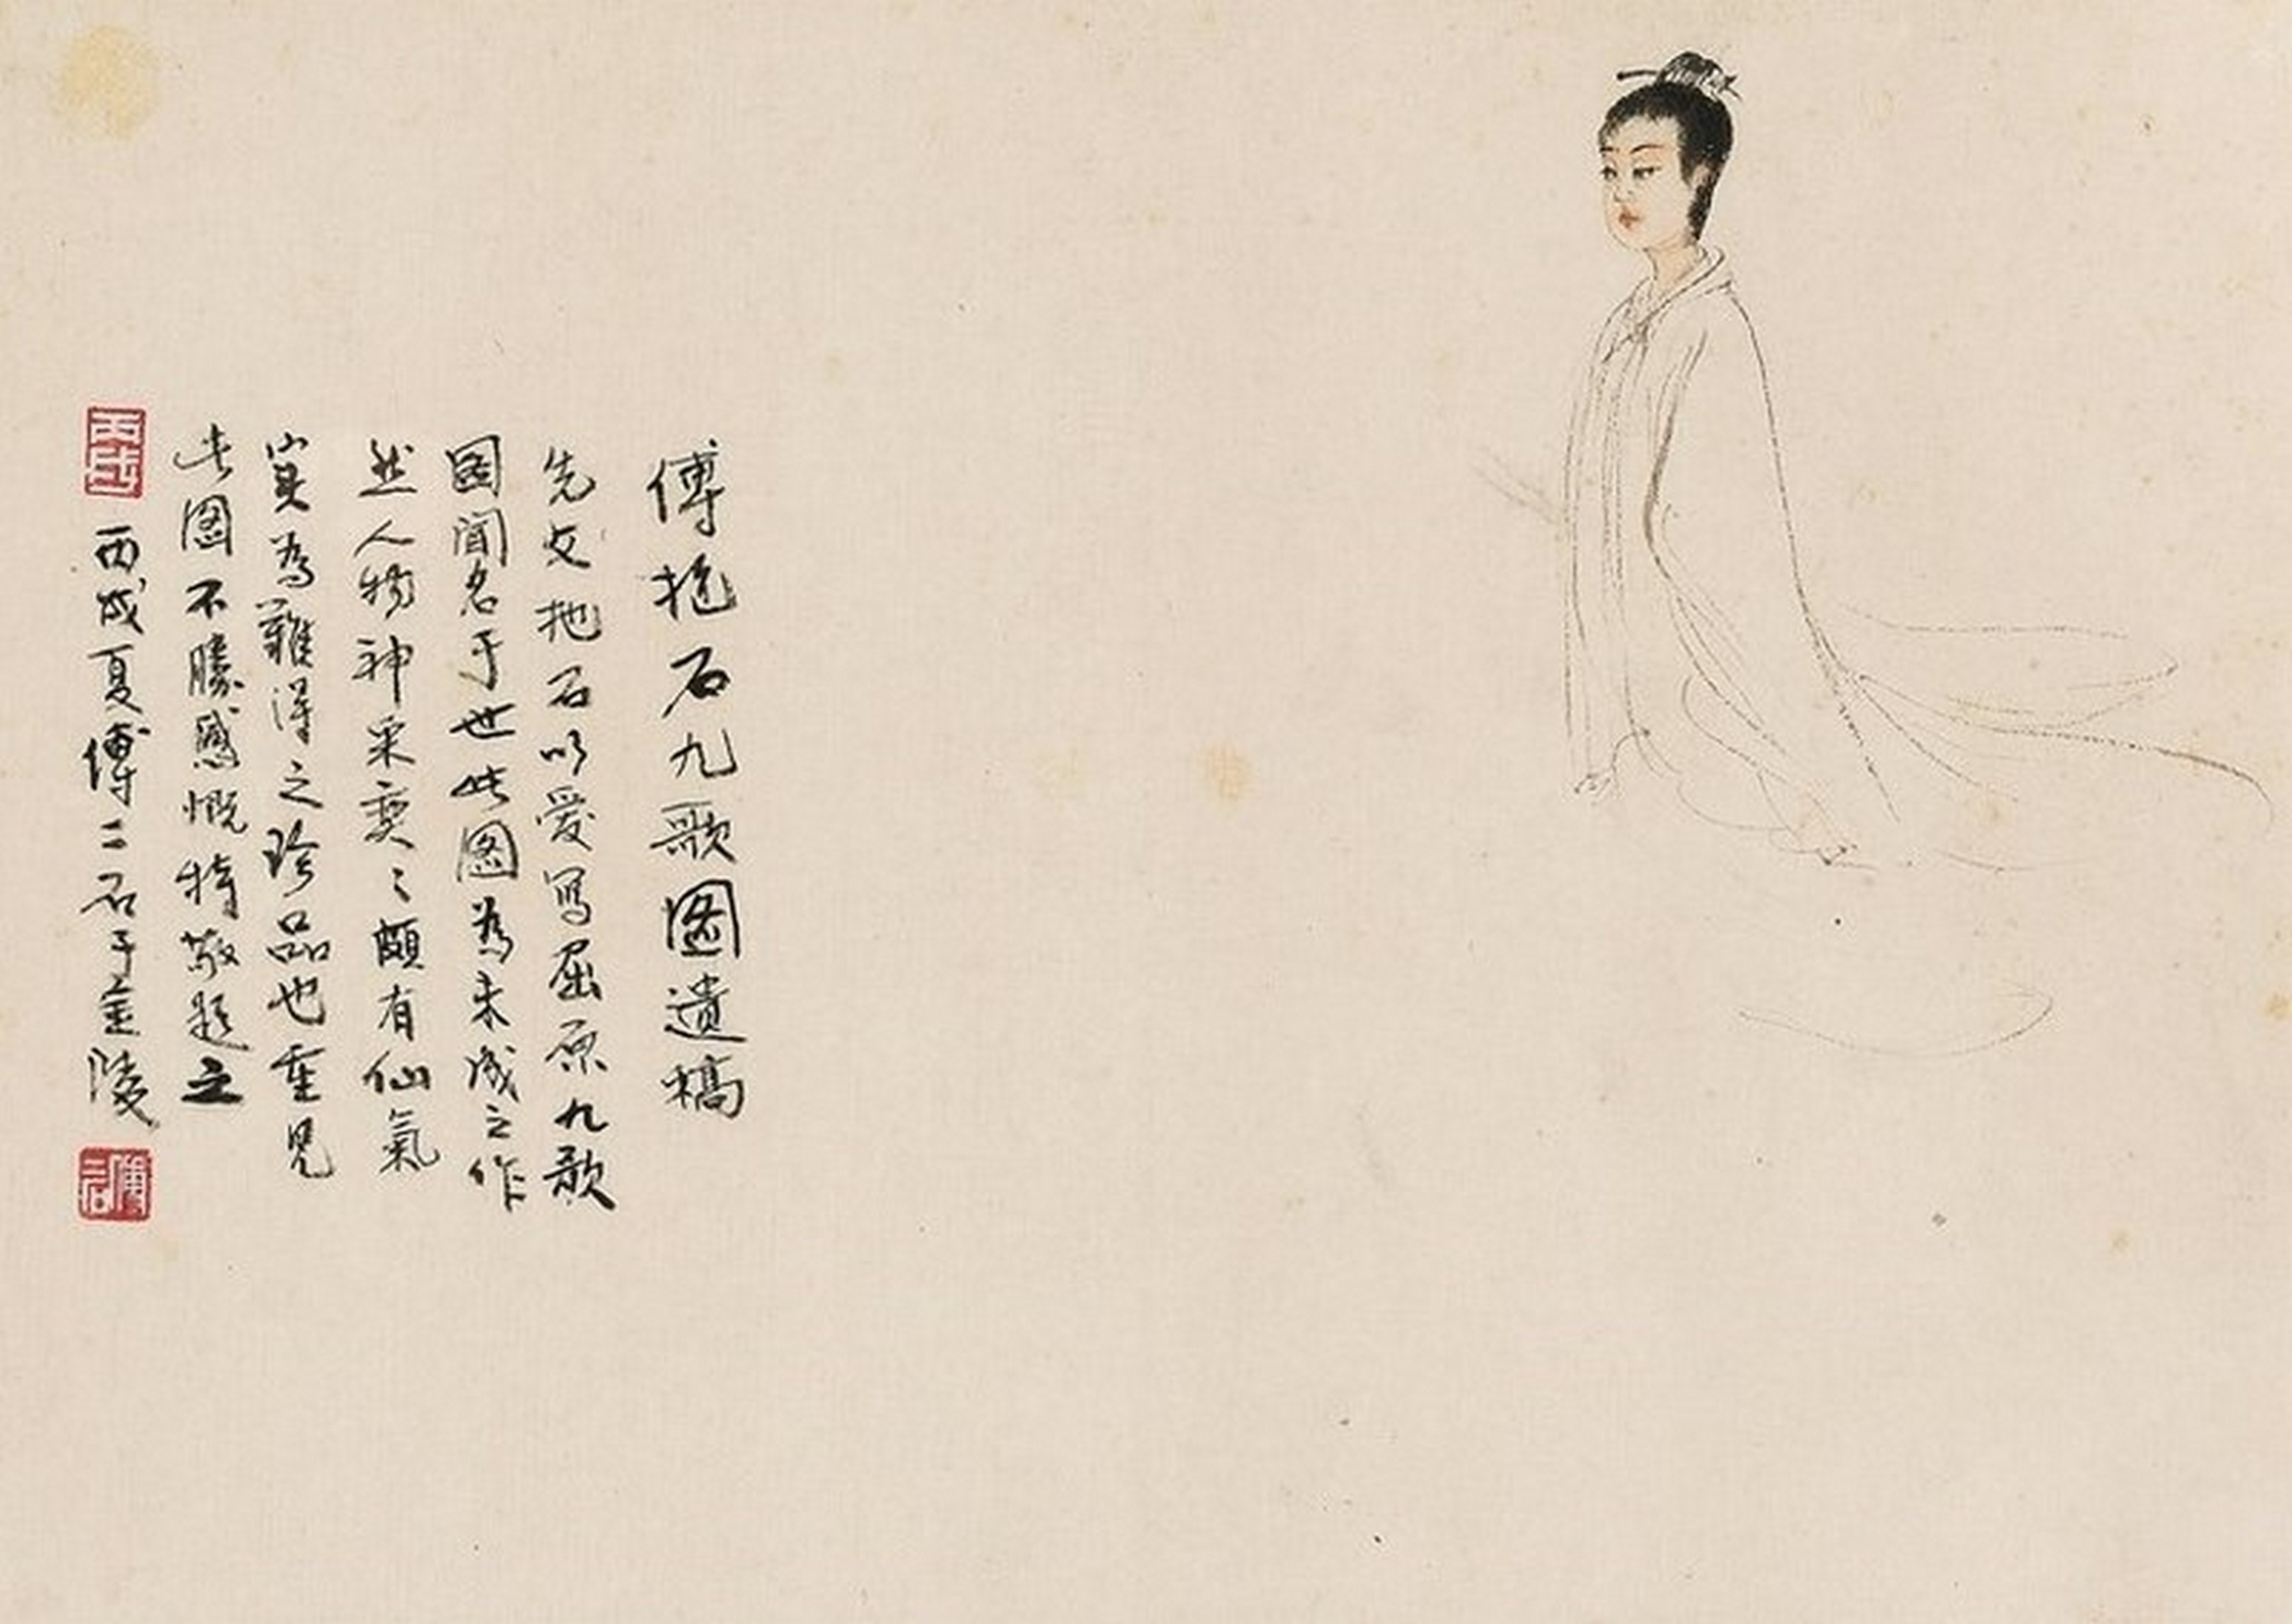 傅抱石九歌圖遺稿
先父抱石以愛寫屈原九歌
圖聞名于世此圖為未成之作
然人物神采奕〻頗有仙氣
實為難得之珍品也重見
此圖不勝感慨特敬題之
丙戌夏傅二石于金陵
丙戌
傅二石